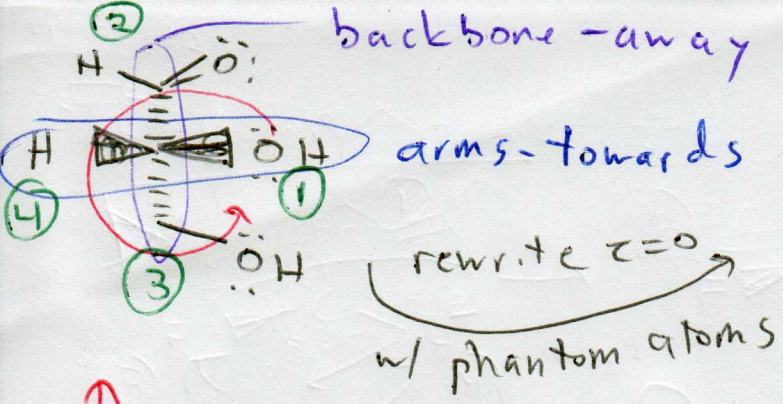 backbone - away
②
H Ö:
H ÖH arms - towards
④ ①
③ ÖH
rewrite C=O
w/ phantom atoms